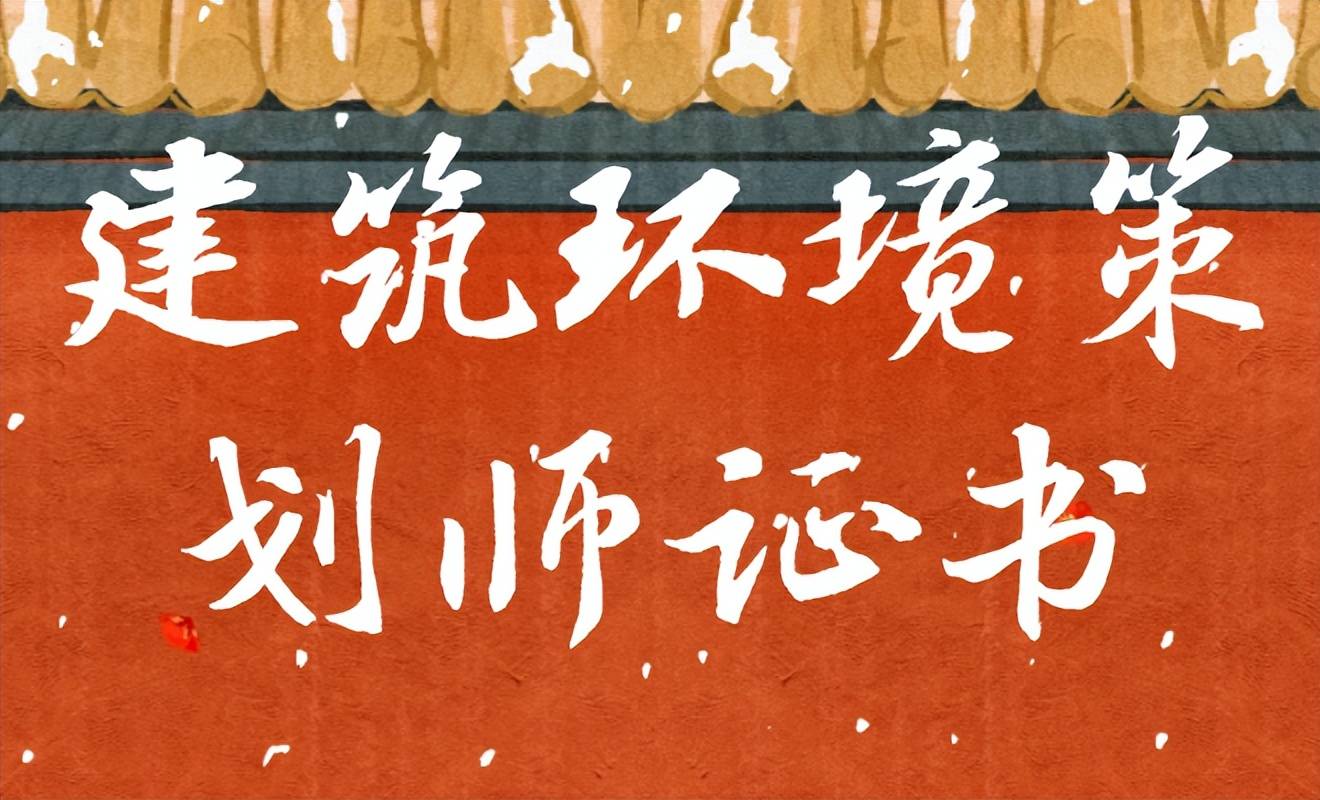 建筑环境策
划师证书